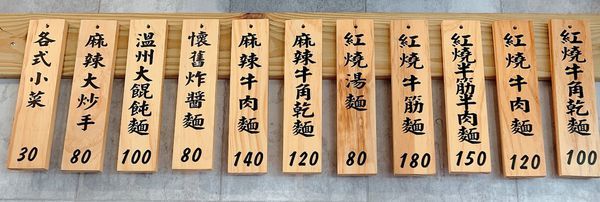 各式小菜
30
麻辣大抄手
80
溫州大餛飩麵
100
懷舊炸醬麵
80
麻辣牛肉麵
140
麻辣牛角乾麵
120
紅燒湯麵
80
紅燒牛筋麵
180
紅燒半筋半肉麵
150
紅燒牛肉麵
120
紅燒牛角乾麵
100